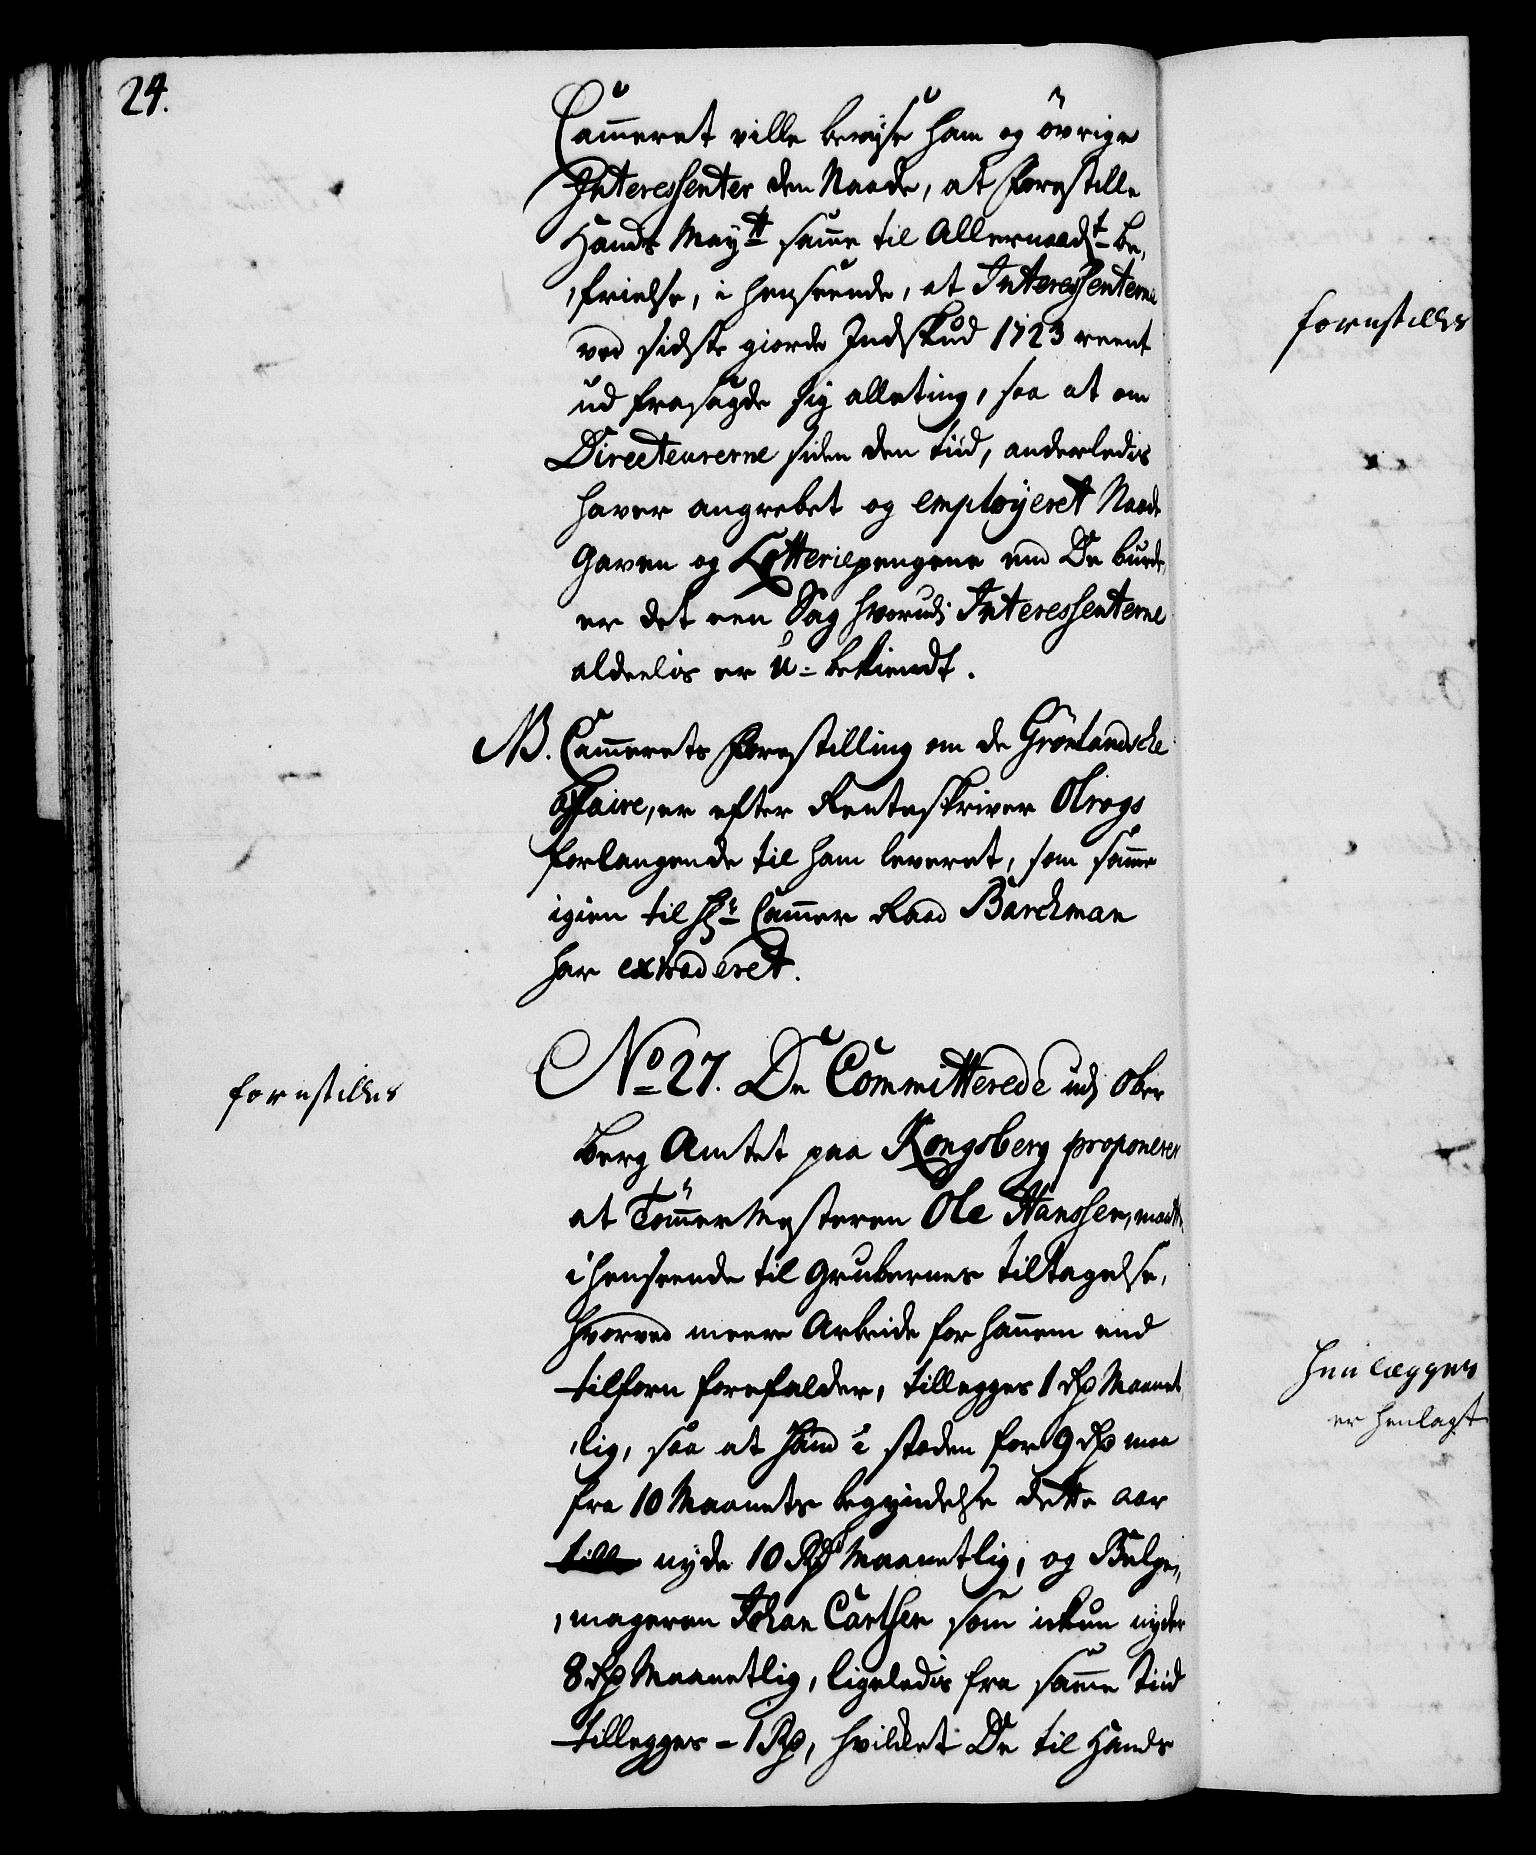 24.
Cammeret ville beviise ham og övrige
Interessenter den Naade, at forestille
Hands May<sup>tt</sup> samme til Allernaadst be,,
,,frielse, i henseende, at Interessenterne
ved sidste giorde Indskud 1723 reent
ud frasagde sig alleting, saa at om
Directeurerne siden den tiid, anderledis
haver angrebet og employeret Naade
Gaven og Lotteriepengene end De burde,
er det een Sag hvorudi Interessenterne
aldeelis er u-bekiendt.
NB. Cammerets Forestilling om de Grönlandsche
affaire, er efter Renteskriver Olrogs
forlangende til ham leveret, som samme
igien til Hr. Cammer Raad Barchman
har extraderet.
forestilles
No 27. De Committerede udj Ober
Berg Amtet paa Kongsberg proponerer
at Tömmermesteren Ole Hanssen, maatte
i henseende til Grubernes tiltagelse,
hvorved meere Arbeide for hannem end
tilforn forefalder, tillegges 1 Rd Maanet
,,lig, saa at hand i steden for 9 Rd maa
fra 10 Maanets begyndelse dette aar
till nyde 10 Rd Maanetlig, og Belge,,
,,mageren Johan Carlsen som ickun nyder
8 Rd Maanetlig, ligeledis fra samme tiid
tillegges - 1 Rd, hvilcket De til Hands
forestilles
Henlægges
er henlagt